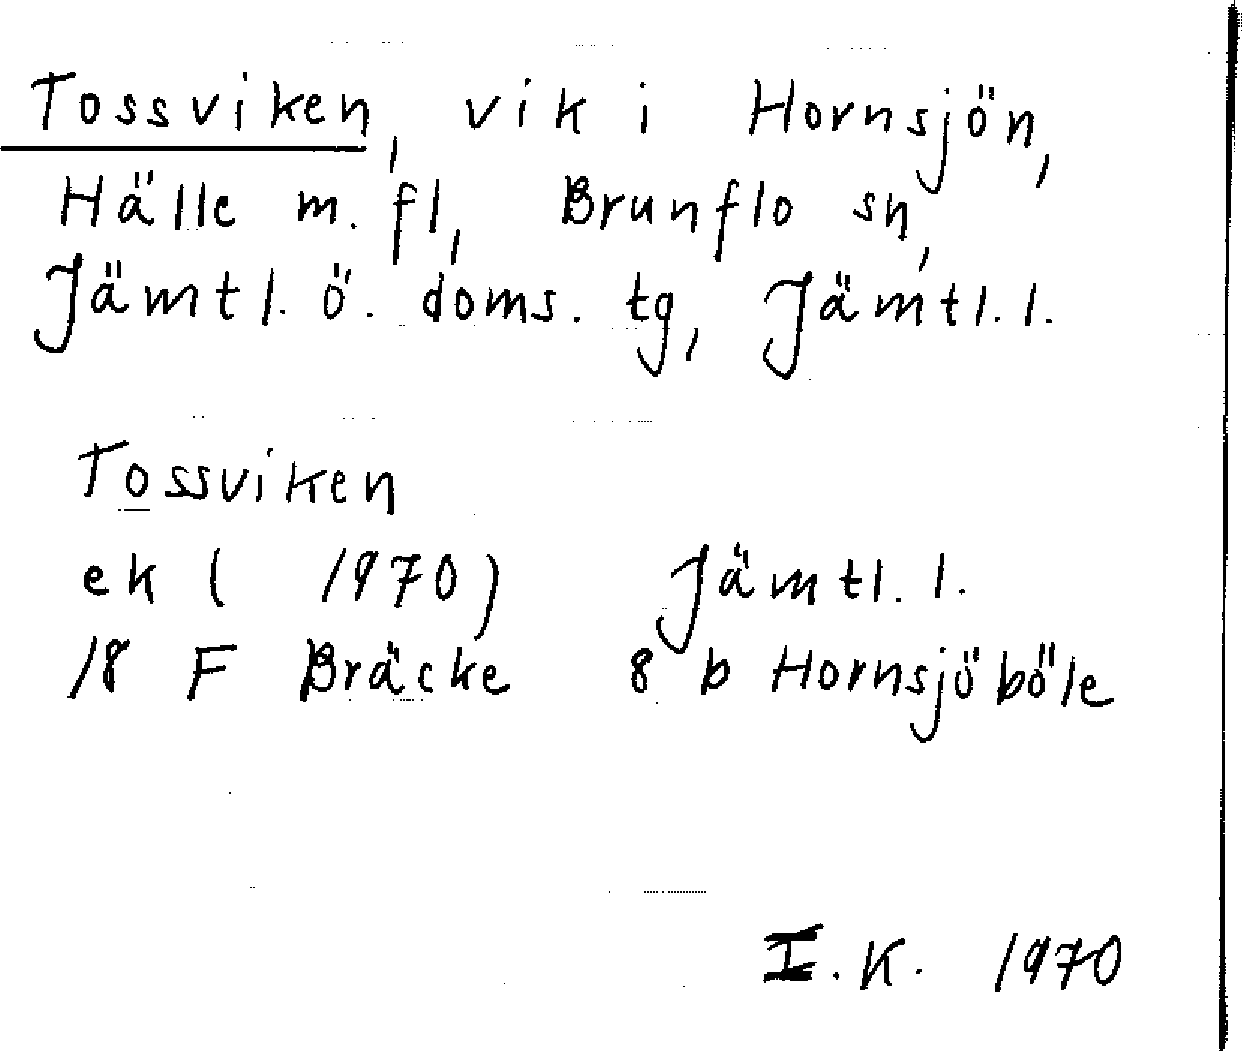 Tossviken, vik i Hornsjön,
Hälle m. fl, Brunflo sn,
Jämtl. ö. doms. tg, Jämtl. l.
Tossviken
ek ( 1970) Jämtl. l.
18 F Bräcke 8 b Hornsjöböle
I.K. 1970